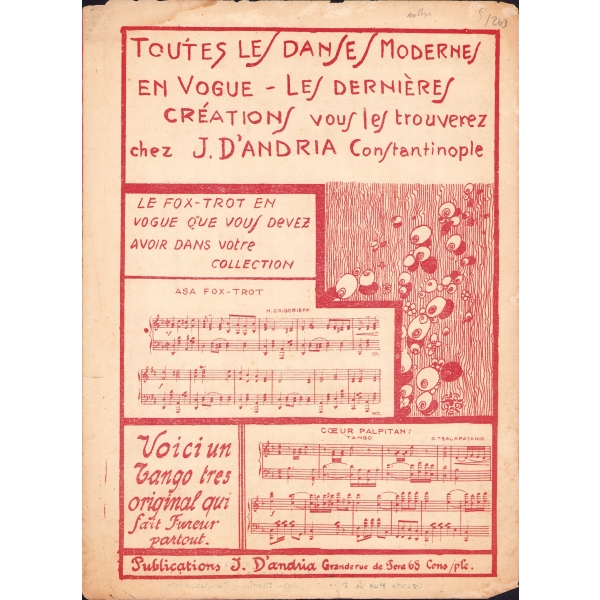 5/268
TOUTES LES DANSES MODERNES
EN VOGUE - LES DERNIÈRES
CRÉATIONS vous les trouverez
chez J. D'ANDRIA Constantinople
LE FOX-TROT EN
VOGUE QUE VOUS DEVEZ
AVOIR DANS votre
COLLECTION
ASA FOX-TROT
M. GRIGORIEFF
CŒUR PALPITANT
TANGO
C. TSALAPATANIS
Voici un
Tango tres
original qui
fait Fureur
partout.
Publications J. D'andria Grande rue de Pera 68 Cons/ple.